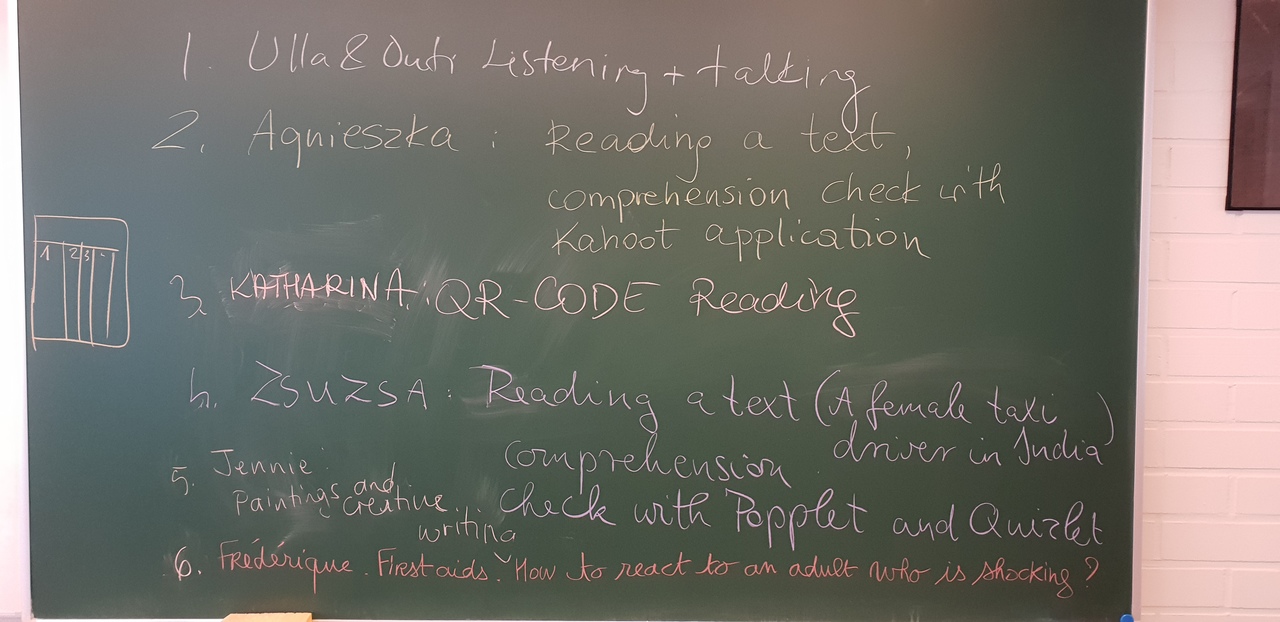 1. Ulla & Outi Listening + talking
2. Agnieszka : Reading a text,
comprehension check with
Kahoot application
1 2 3
3. KATHARINA. QR-CODE Reading
4. ZSUZSA : Reading a text (A female taxi
driver in India)
comprehension
check with Popplet and Quizlet
5. Jennie :
Paintings and
creative
writing
6. Frédérique. First aids. "How to react to an adult who is shocking ?